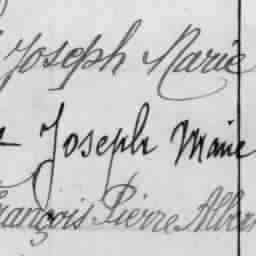 Joseph Marie
Joseph Marie
François Pierre Alber